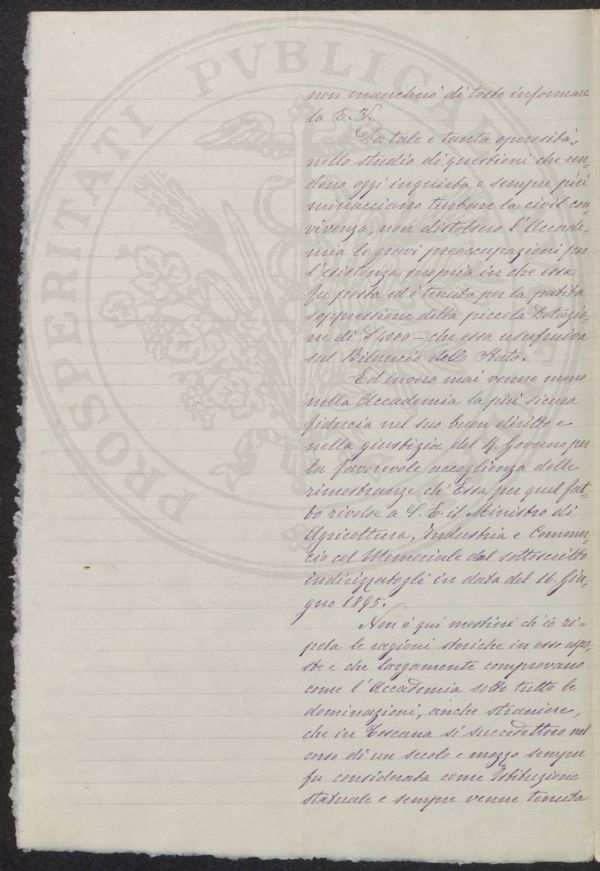 PROSPERITATI PVBLICAE
non mancherò di tosto informare
la E. V.
Da tale e tanta operosità,
nello studio di questioni che ren-
dono oggi inquieta, e sempre più
minacciano turbare la civil con-
vivenza, non distolsero l'Accade-
mia le gravi preoccupazioni per
l'esistenza propria in che essa
fu posta ed è tenuta per la patita
soppressione della piccola Dotazio-
ne di che essa usufruiva
sul Bilancio dello Stato.
Ed invero mai venne meno
nella Accademia la più sicura
fiducia nel suo buon diritto e
nella giustizia del R. Governo per
la favorevole accoglienza delle
rimostranze ch'Essa per quel fat-
to rivolse a S. E. il Ministro di
Agricoltura, Industria e Commer-
cio col Memoriale dal sottoscritto
indirizzatogli in data del 16. Giu-
gno 1895.
Non è qui mestieri ch'io ri-
peta le ragioni storiche in esso espo-
ste e che largamente comprovano
come l'Accademia sotto tutte le
dominazioni, anche straniere,
che in Toscana si succedettero nel
corso di un secolo e mezzo sempre
fu considerata come Istituzione
statuale e sempre venne tenuta